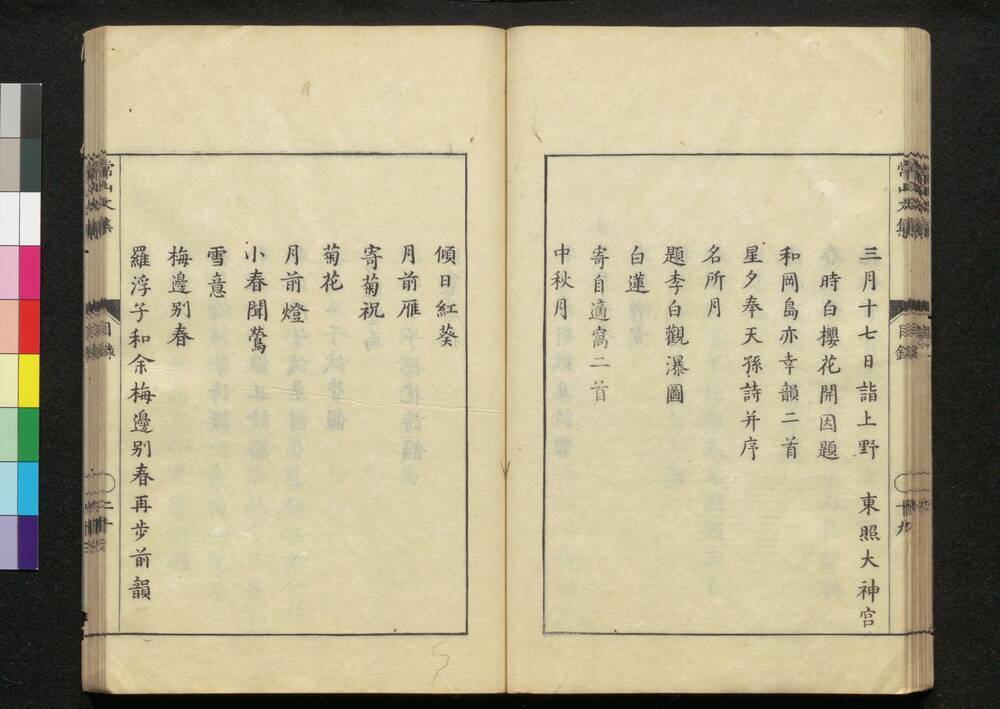 常山文集
目録
十九
三月十七日詣上野　東照大神宮
時白櫻花開因題
和岡島亦幸韻二首
星夕奉天孫詩并序
名所月
題李白觀瀑圖
白蓮
寄自適窩二首
中秋月
傾日紅葵
月前雁
寄菊祝
菊花
月前燈
小春聞鶯
雪意
梅邊別春
羅浮子和余梅邊別春再步前韻
常山文集
目録
二十